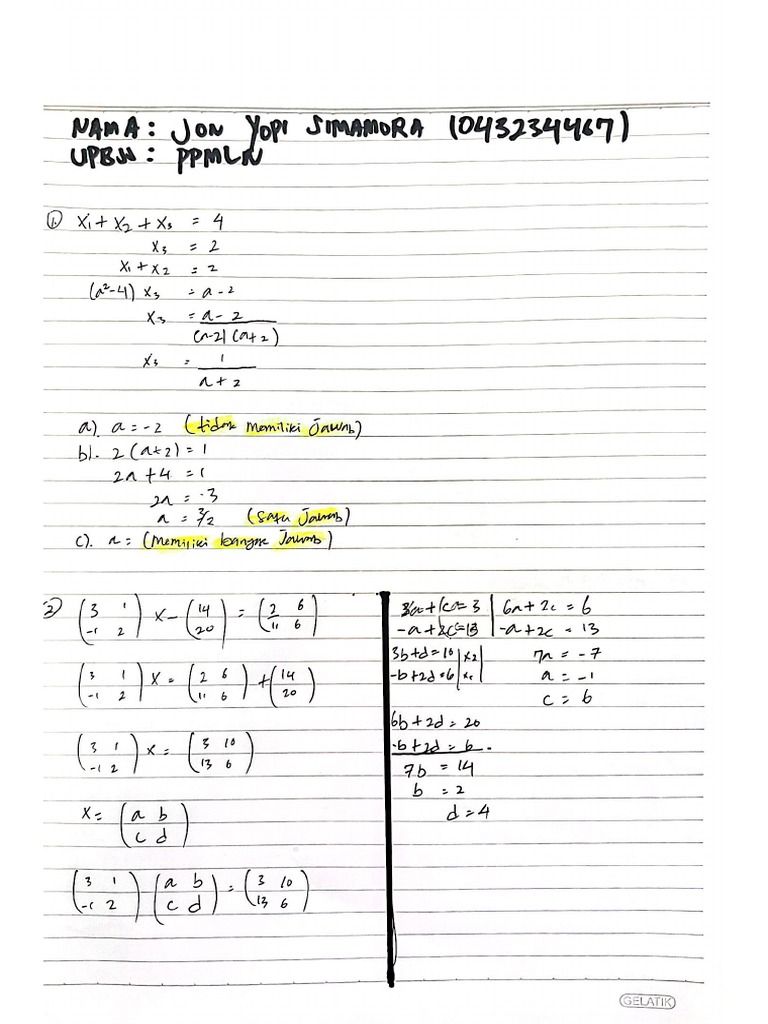 NAMA : JON YOPI SIMAMORA (043234467)
UPBJJ : PPMLN
1. x1 + x2 + x3 = 4
x3 = 2
x1 + x2 = 2
(a²-4) x3 = a - 2
x3 = a - 2 / (a-2) (a+2)
x3 = 1 / a + 2
a). a = -2 (tidak memiliki Jawab)
b). 2 (a+2) = 1
2a + 4 = 1
2a = -3
a = 3/2 (Satu Jawab)
c). a = (Memiliki banyak Jawab)
2) (3 1 / -1 2) x - (1 4 / 2 0) = (2 6 / 11 6)
(3 1 / -1 2) x = (2 6 / 11 6) + (1 4 / 2 0)
(3 1 / -1 2) x = (3 10 / 13 6)
x = (a b / c d)
(3 1 / -1 2) (a b / c d) = (3 10 / 13 6)
3a + c = 3 | 6a + 2c = 6
-a + 2c = 13 | -a + 2c = 13
3b + d = 10 | x2 | 7a = -7
-b + 2d = 6 | x1 | a = -1
c = 6
6b + 2d = 20
-b + 2d = 6 -
7b = 14
b = 2
d = 4
GELATIK